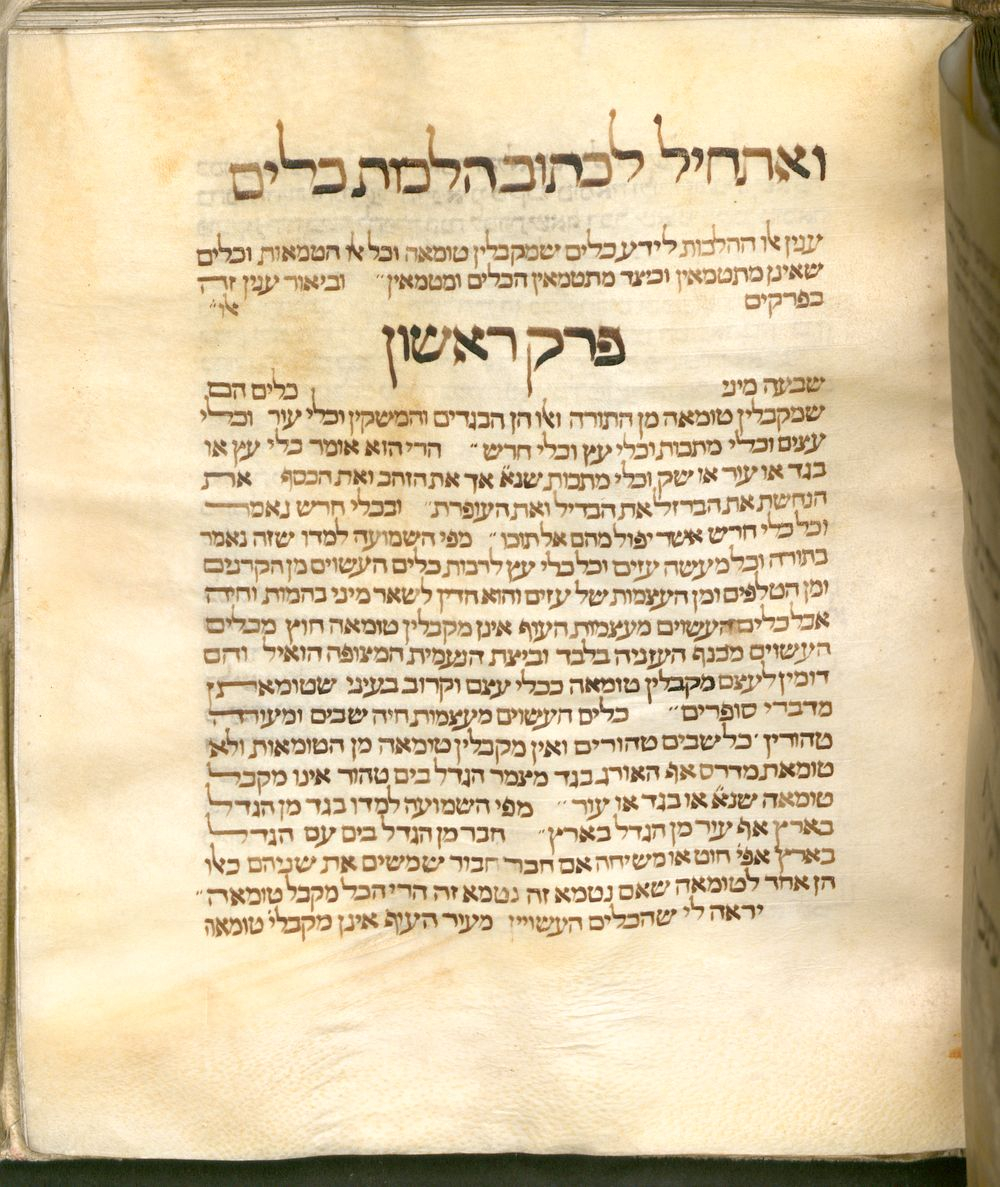 ואתחיל לכתוב הלכות כלים
ענין אלו ההלכות לידע כלים שמקבלין טומאה וכל אלו הטמאות וכלים
שאינן מתטמאין וכיצד מתטמאין הכלים ומטמאין״ וביאור ענין זה
בפרקים אלו״
פרק ראשון
שבעה מיני כלים הם
שמקבלין טומאה מן התורה ואלו הן הבגדים והמשקין וכלי עור וכלי
עצים וכלי מתכות וכלי עץ וכלי חרש״ הרי הוא אומר כלי עץ או
בגד או עור או שק וכלי מתכות שנ׳ אך את הזהב ואת הכסף את
הנחשת את הברזל את הבדיל ואת העופרת״ ובכלי חרש נאמר
וכל כלי חרש אשר יפול מהם אל תוכו״ מפי השמועה למדו שזה נאמר
בתורה וכל מעשה עזים וכל כלי עץ לרבות כלים העשוים מן הקרנים
ומן הטלפים ומן העצמות של עזים והוא הדין לשאר מיני בהמות וחיה
אבל כלים העשוים מעצמות העוף אינן מקבלין טומאה חוץ מכלים
העשוים מכנף העזניה בלבד וביצת הנעמית המצופה הואיל והם
דומין לעצם מקבלין טומאה ככלי עצם וקרוב בעיני שטומאתן
מדברי סופרים״ כלים העשוים מעצמות חיה שבים ומעורה
טהורין ׳כל שבים טהורים ואין מקבלין טומאה מן הטומאות ולא
טומאת מדרס אף האורג בגד מצמר הגדל בים טהור אינו מקבל
טומאה שנ׳ או בגד או עור ״ מפי השמועה למדו בגד מן הגדל
בארץ אף עור מן הגדל בארץ״ חבר מן הגדל בים עם הגדל
בארץ אפי׳ חוט או משיחה אם חברו חבור שמשים את שניהם כאלו
הן אחד לטומאה שאם נטמא זה נטמא זה הרי הכל מקבל טומאה״
יראה לי שהכלים העשויין מעור העוף אינן מקבלי׳ טומאה